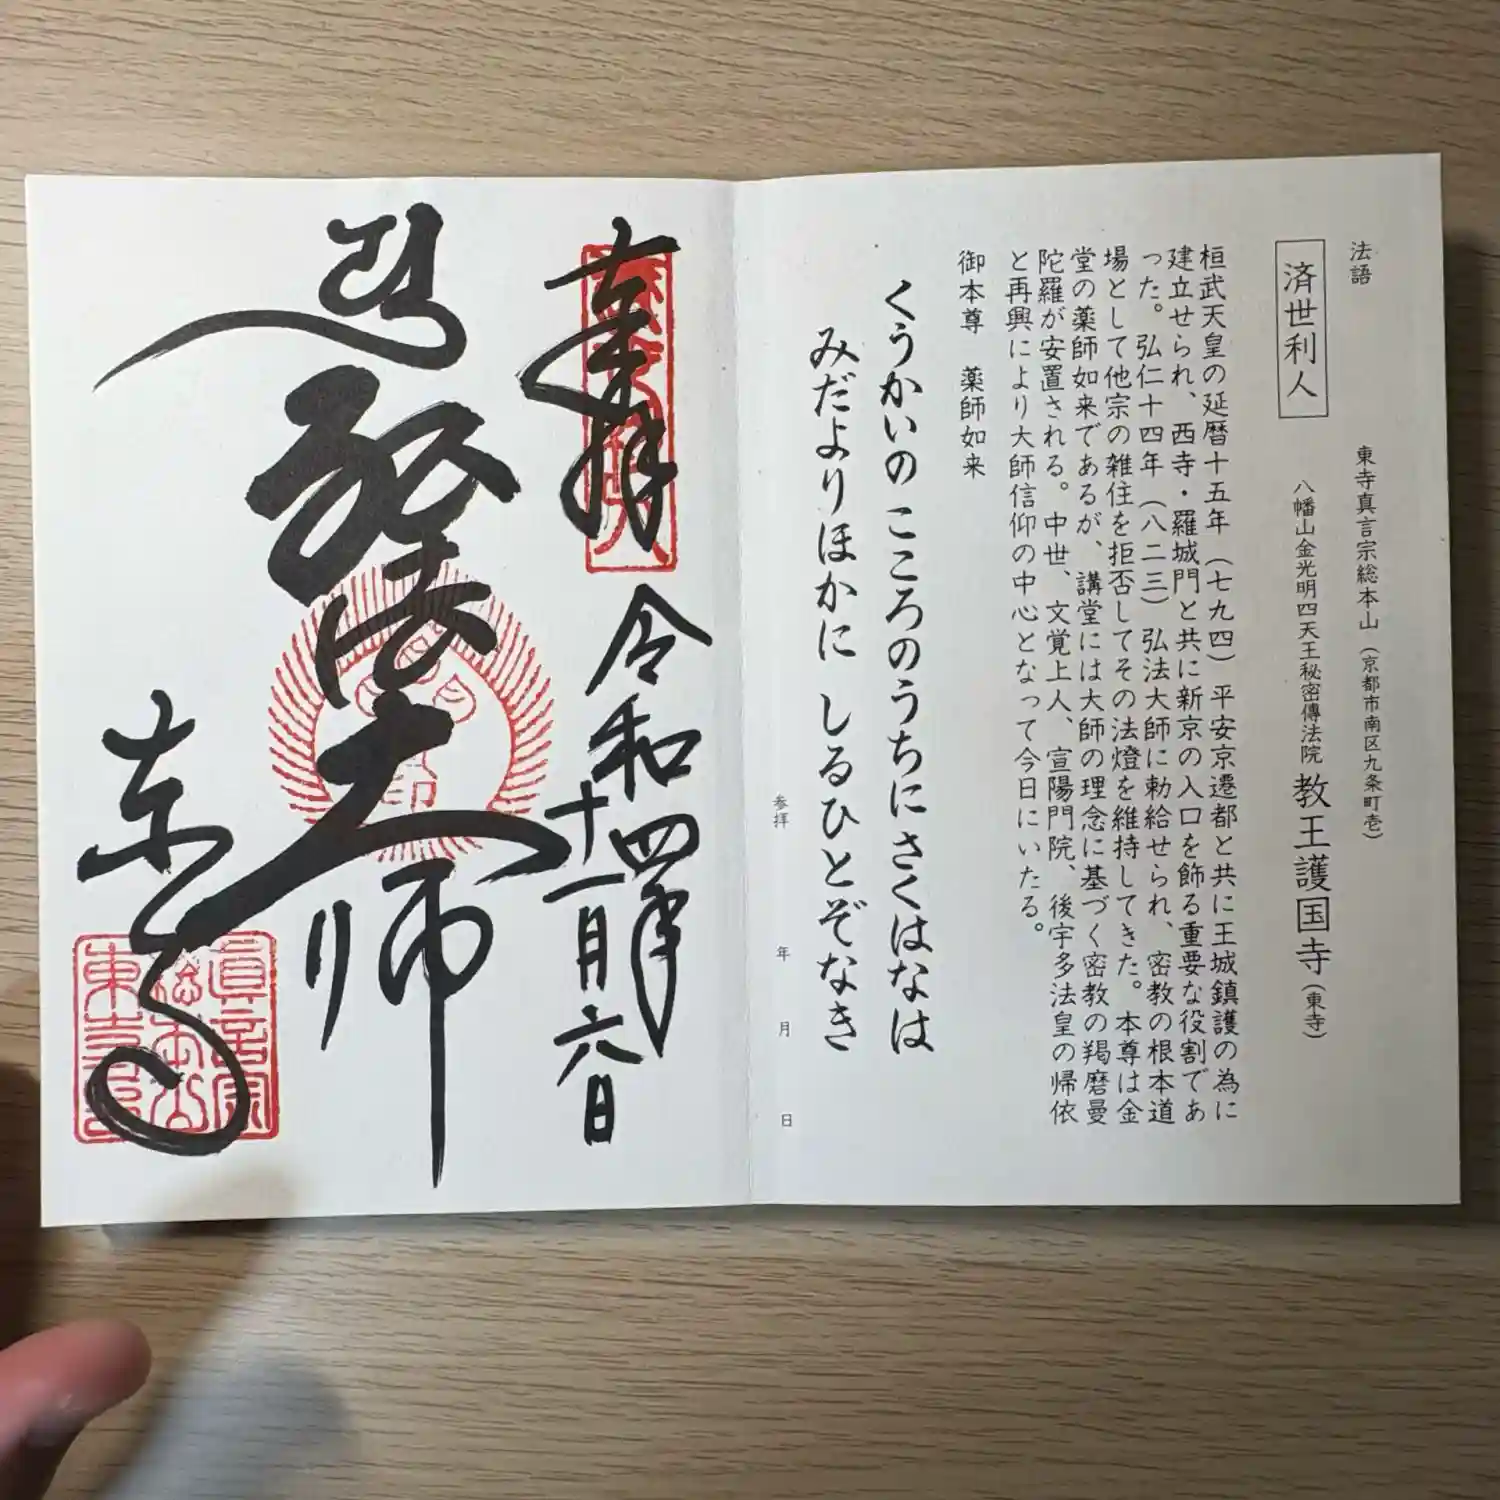 法語
東寺真言宗総本山(京都市南区九条町壱)
済世利人
八幡山金光明四天王秘密傳法院 教王護国寺(東寺)
桓武天皇の延暦十五年(七九四)平安京遷都と共に王城鎮護の為に
建立せられ、西寺・羅城門と共に新京の入口を飾る重要な役割であ
った。弘仁十四年(八二三)弘法大師に勅給せられ、密教の根本道
場として他宗の雑住を拒否してその法燈を維持してきた。本尊は金
堂の薬師如来であるが、講堂には大師の理念に基づく密教の羯磨曼
陀羅が安置される。中世、文覚上人、宣陽門院、後宇多法皇の帰依
と再興により大師信仰の中心となって今日にいたる。
御本尊 薬師如来
くうかいの こころのうちにさくはなは
みだよりほかに しるひとぞなき
参拝 年 月 日
奉拝
令和四年
十一月六日
弘法大師
東寺
真言宗
総本山
東寺